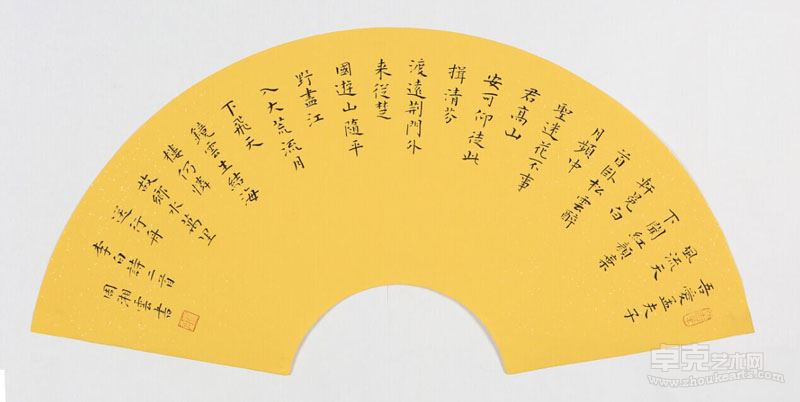 吾愛孟夫子
風流天
下聞紅顏棄
軒冕白
首臥松雲醉
月頻中
聖迷花不事
君高山
安可仰徒此
揖清芬
渡遠荊門外
来從楚
國遊山隨平
野盡江
入大荒流月
下飛天
鏡雲生結海
樓仍憐
故鄉水萬里
送行舟
李白詩二首
周湘雲書
卓克艺术网
www.zhoukearts.com